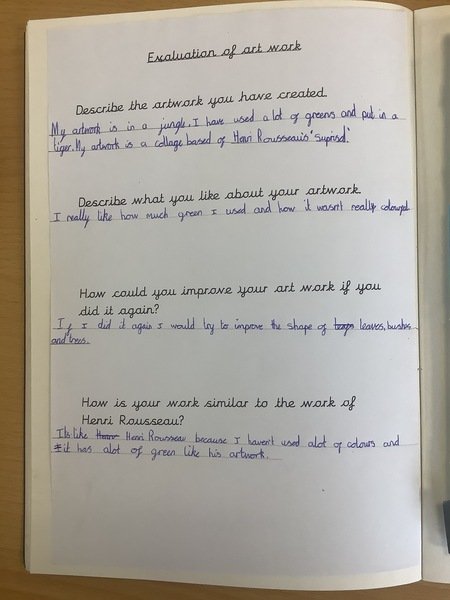 Evaluation of art work
Describe the artwork you have created.
My artwork is in a jungle. I have used a lot of greens and put in a
tiger. My artwork is a collage based of Henri Rousseau's "Suprised."
Describe what you like about your artwork.
I really like how much green I used and how it wasn't really coloured
How could you improve your art work if you
did it again?
If I did it again I would try to improve the shape of leaves, bushes
and trees.
How is your work similar to the work of
Henri Rousseau?
It's like Henri Rousseau because I haven't used alot of colours and
it has alot of green like his artwork.